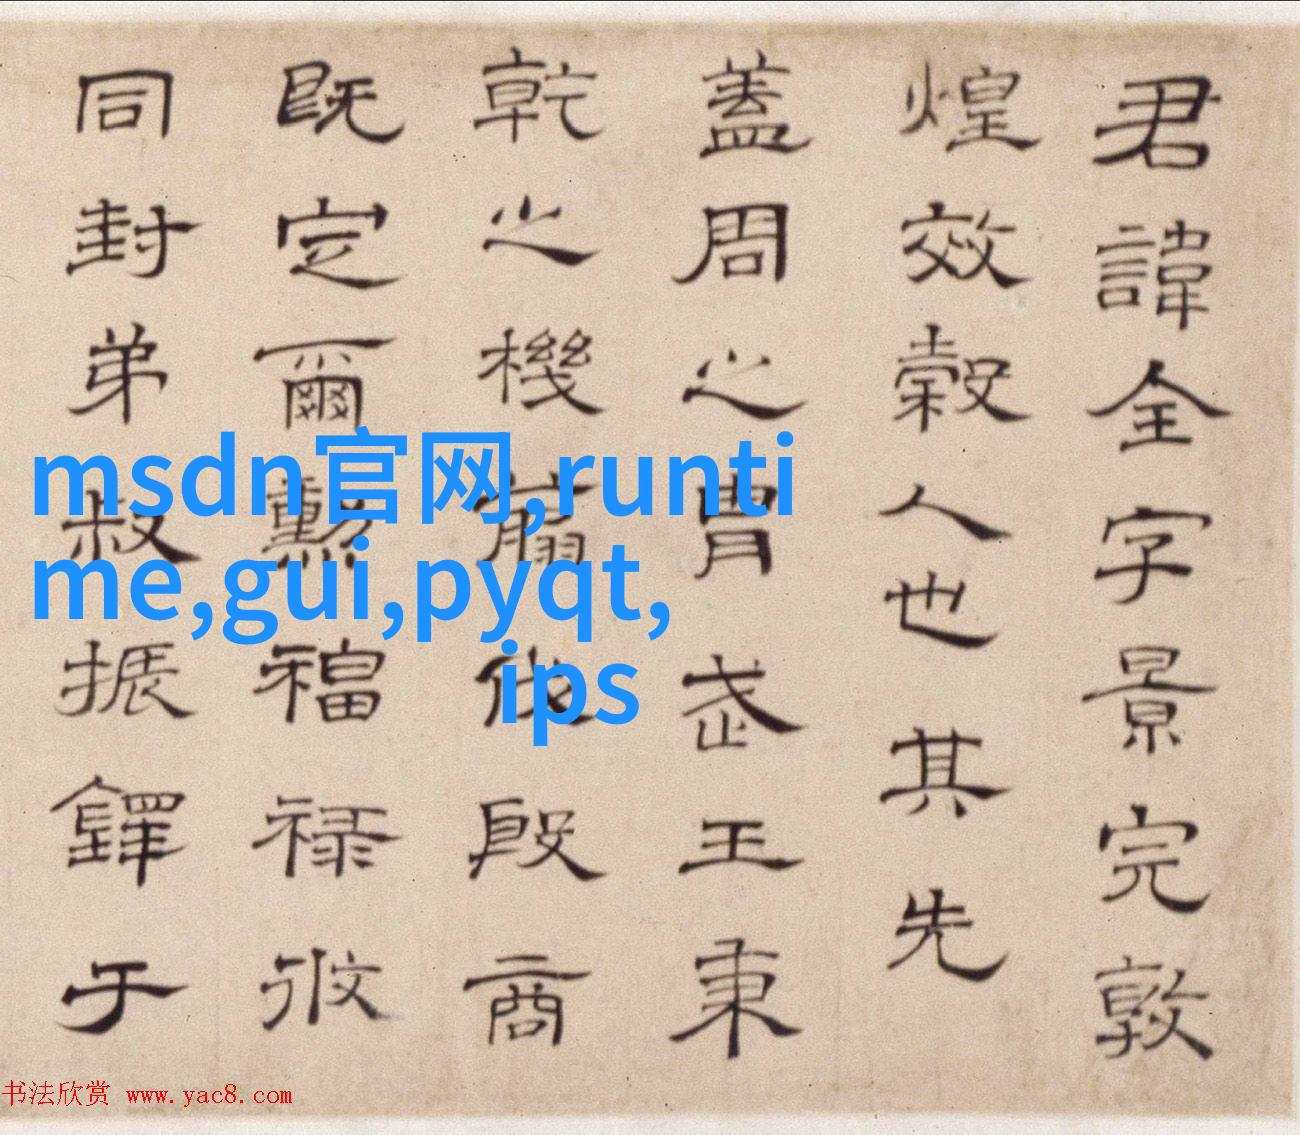 君諱全字景完敦
煌效穀人也其先
蓋周之胄武王秉
乾之機翦伐殷商
既定爾勲福祿攸
同封弟叔振鐸于
msdn官网,runti
me,gui,pyqt,
ips
书法欣赏 www.yac8.com